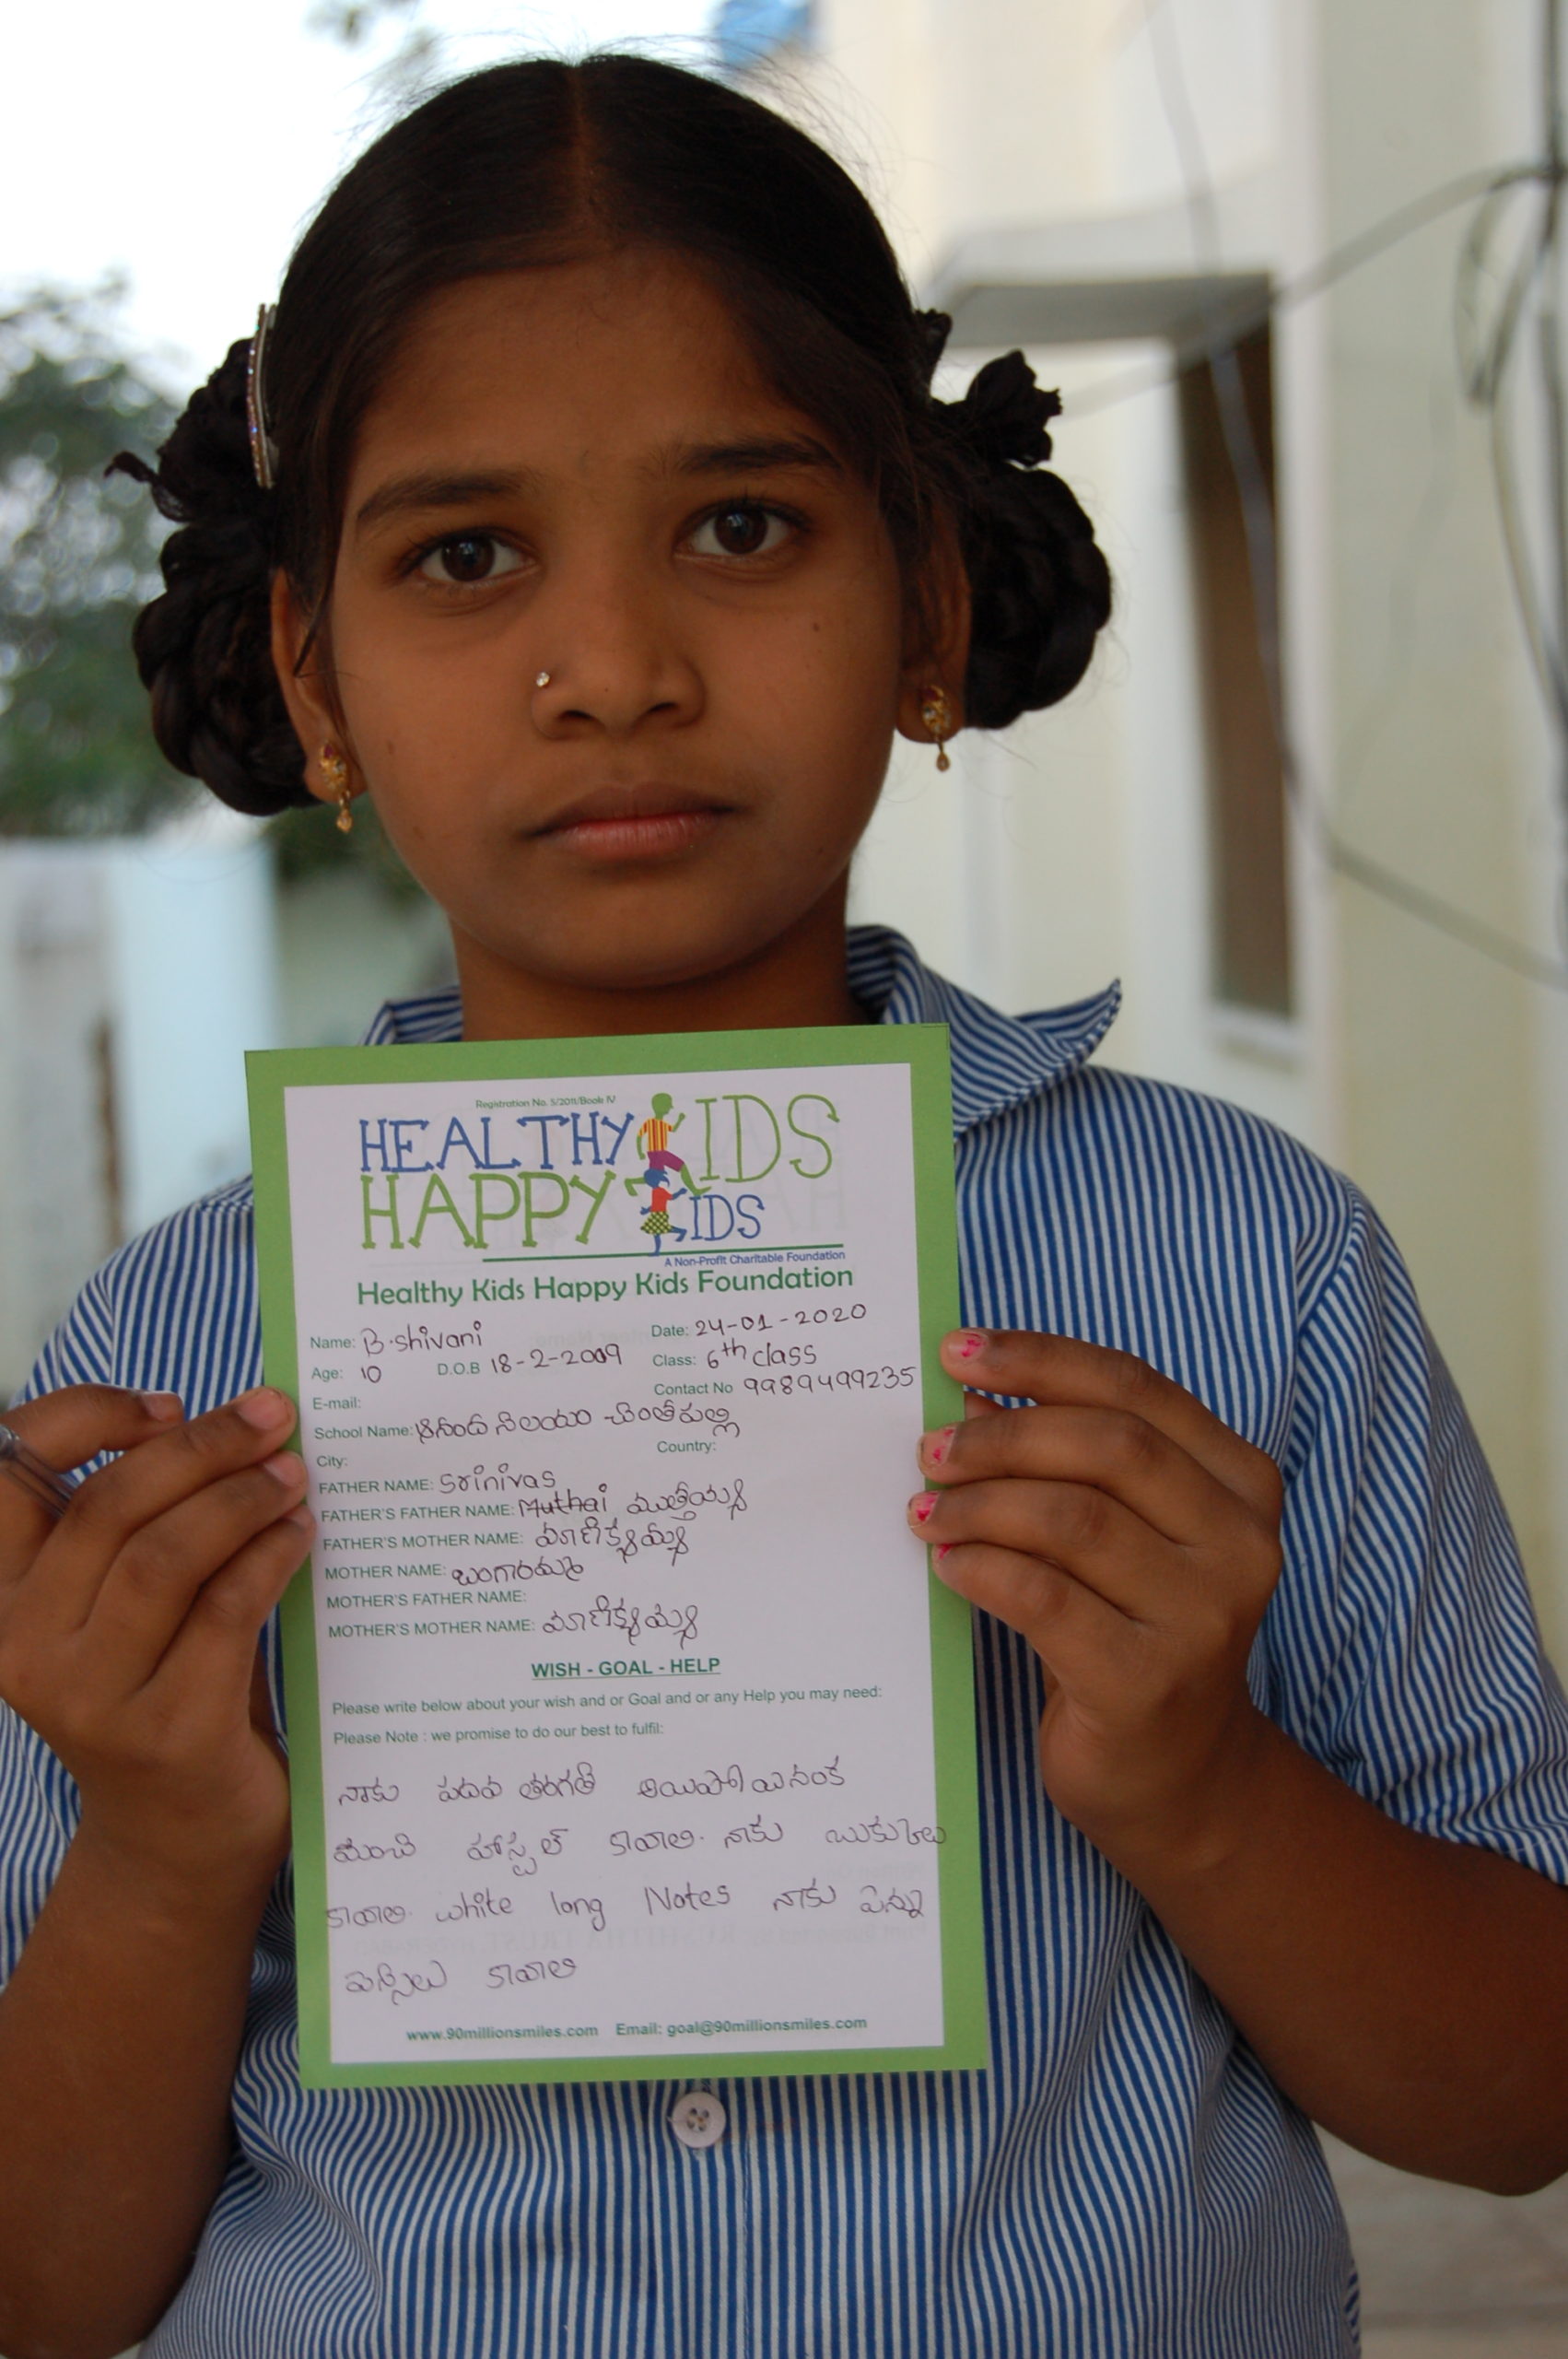 Registration No. 5/2011/Book IV
HEALTHY KIDS
HAPPY KIDS
A Non-Profit Charitable Foundation
Healthy Kids Happy Kids Foundation
Name: B.shivani Date: 24-01-2020
Age: 10 D.O.B 18-2-2009 Class: 6th class
E-mail: Contact No 9989499235
School Name: ఆనంద నిలయం చింతపల్లి
City: Country:
FATHER NAME: Srinivas
FATHER'S FATHER NAME: Muthai ముత్తయ్య
FATHER'S MOTHER NAME: మాణిక్యమ్మ
MOTHER NAME: బంగారమ్మ
MOTHER'S FATHER NAME:
MOTHER'S MOTHER NAME: మాణిక్యమ్మ
WISH - GOAL - HELP
Please write below about your wish and or Goal and or any Help you may need:
Please Note : we promise to do our best to fulfil:
నాకు పదవ తరగతి అయిపోయినంక
మంచి హాస్టల్ కావాలి. నాకు బుక్కులు
కావాలి. white long Notes నాకు పెన్ను
పెన్సిలు కావాలి
www.90millionsmiles.com Email: goal@90millionsmiles.com